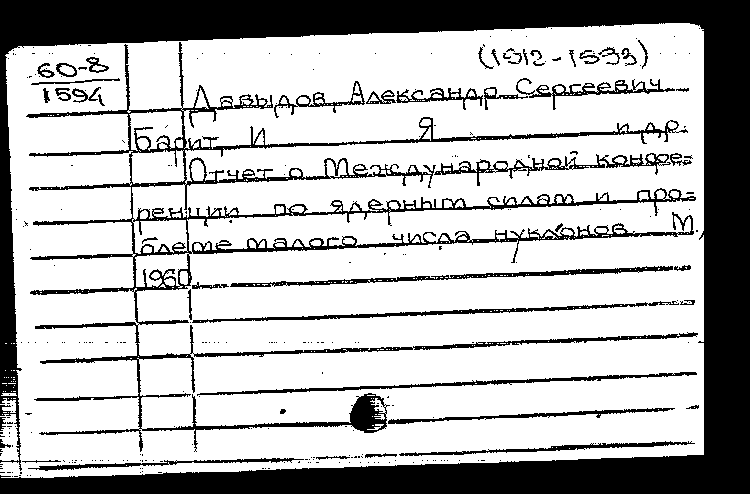 (1912-1993)
60-8
1594
Давыдов, Александр Сергеевич
Барит, И Я и др.
Отчет о Международной конфе=
ренции по ядерным силам и про=
блеме малого числа нуклонов. М.,
1960.